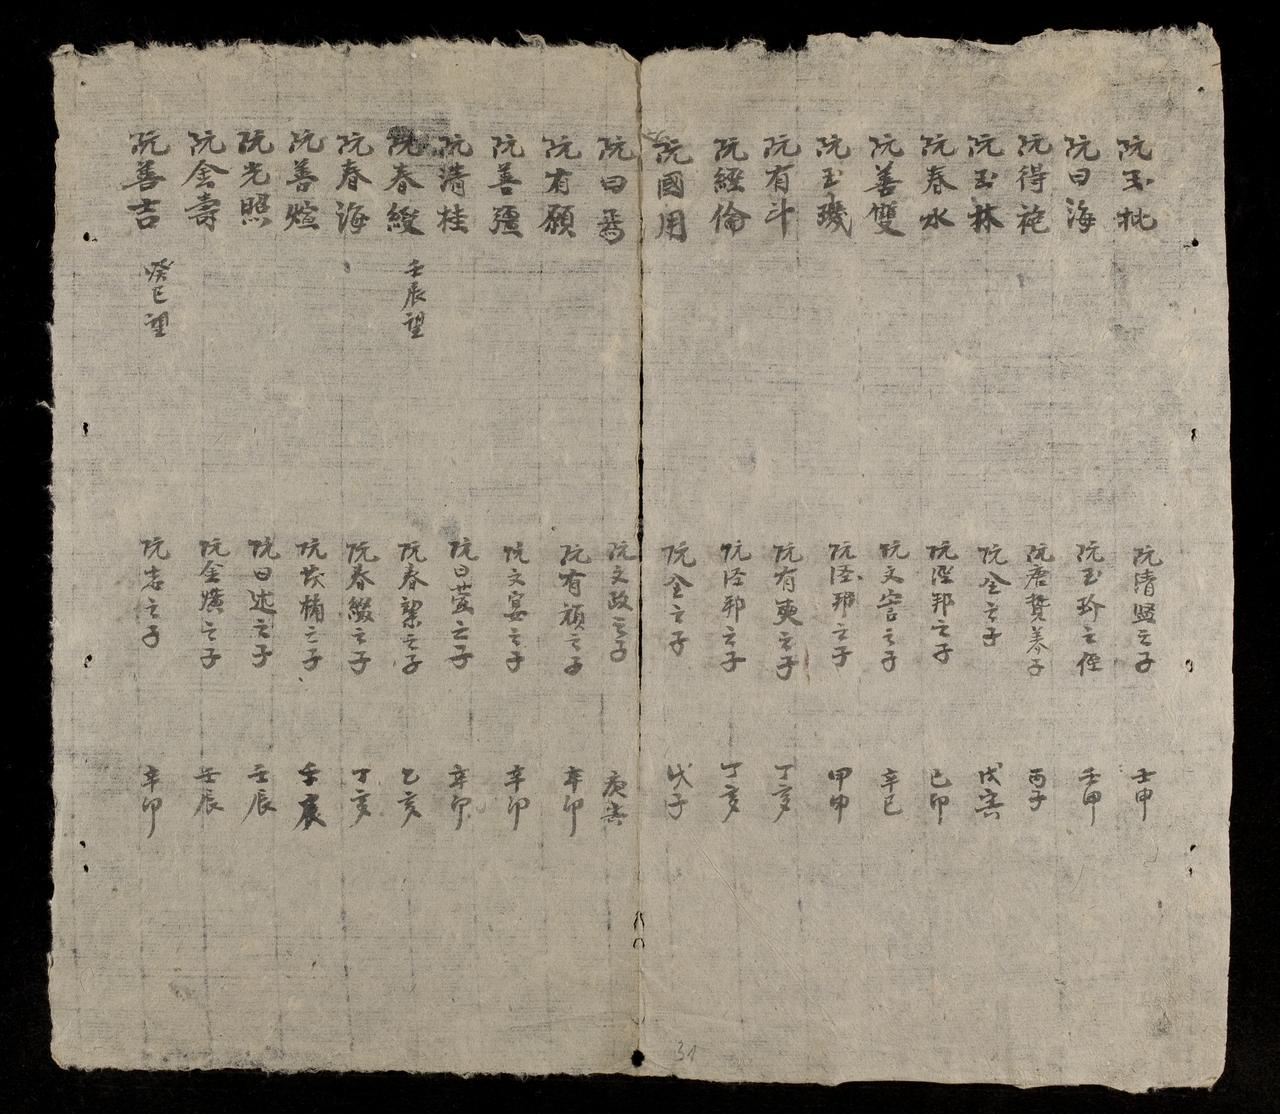 阮玉枇 阮清堅之子 壬申
阮曰海 阮玉珍之侄 壬申
阮得祂 阮唐贊養子 丙子
阮玉林 阮全之子 戊寅
阮春水 阮涇邦之子 己卯
阮善雙 阮文害之子 辛巳
阮玉璣 阮涇邦之子 甲申
阮有斗 阮有奭之子 丁亥
阮經倫 阮涇邦之子 丁亥
阮國用 阮全之子 戊子
阮曰焉 阮文政之子 庚寅
阮有願 阮有頑之子 辛卯
阮善彊 阮文宴之子 辛卯
阮清桂 阮曰之子 辛卯
阮春綬 壬辰望 阮春絜之子 乙亥
阮春海 阮春綴之子 丁亥
阮善煊 阮之子 壬辰
阮光照 阮曰述之子 壬辰
阮舍壽 阮金璜之子 壬辰
阮善吉 癸巳望 阮之子 辛卯
31